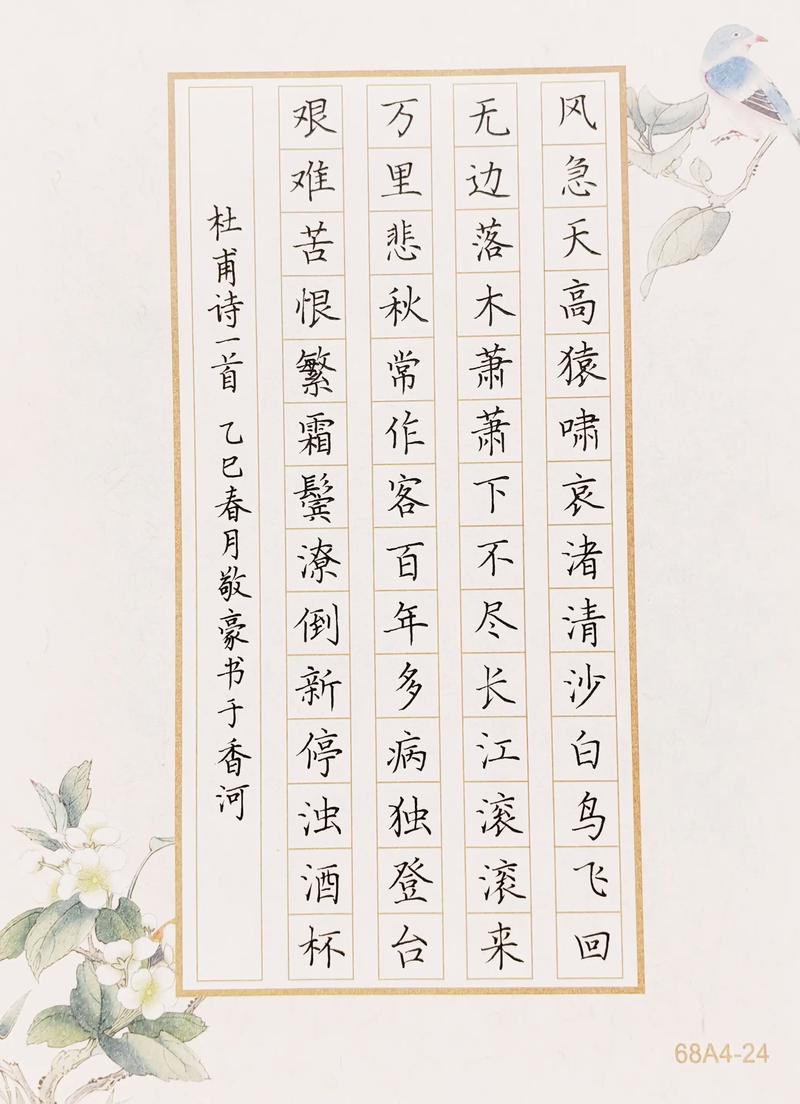 风急天高猿啸哀渚清沙白鸟飞回
无边落木萧萧下不尽长江滚滚来
万里悲秋常作客百年多病独登台
艰难苦恨繁霜鬓潦倒新停浊酒杯
杜甫诗一首 乙巳春月敬豪书于香河
68A4-24